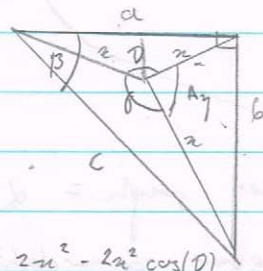 a
β x D x
A y b
x
C
2x² - 2x² cos(D)